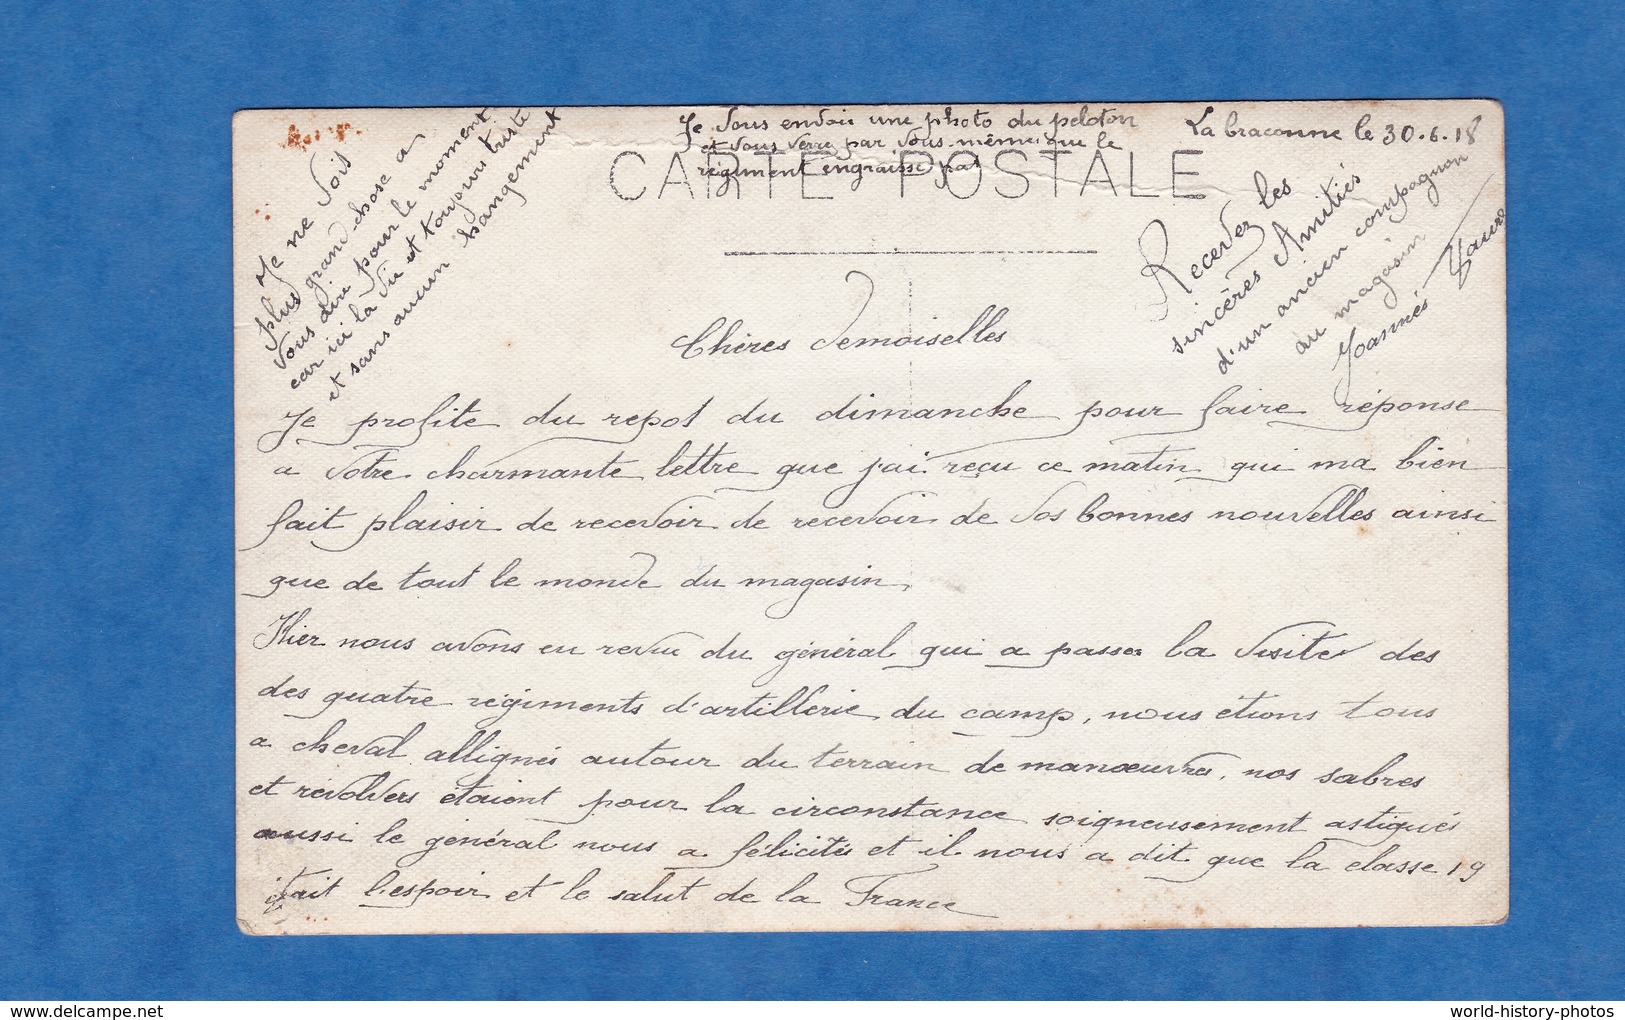 La braconne le 30.6.18
Je vous envoie une photo du peloton
et vous verre par vous-même que le
régiment engraisse pas
CARTE POSTALE
Chères Demoiselles
Je profite du repos du dimanche pour faire réponse
a votre charmante lettre que j'ai reçu ce matin qui ma bien
fait plaisir de recevoir de recevoir de vos bonnes nouvelles ainsi
que de tout le monde du magasin.
Hier nous avons eu revue du général qui a passer la visite des
des quatre régiments d'artillerie du camp, nous étions tous
a cheval allignés autour du terrain de manœuvres, nos sabres
et révolvers étaient pour la circonstance soigneusement astiqués
aussi le général nous a félicités et il nous a dit que la classe 19
était l'espoir et le salut de la France
Je ne vois
plus grand-chose a
vous dire pour le moment
car ici la vie et toujours triste
et sans aucun hangement
Recevez les
sincères Amitiés
d'un ancien compagnon
au magasin
Joannés Faure
world-history-photos